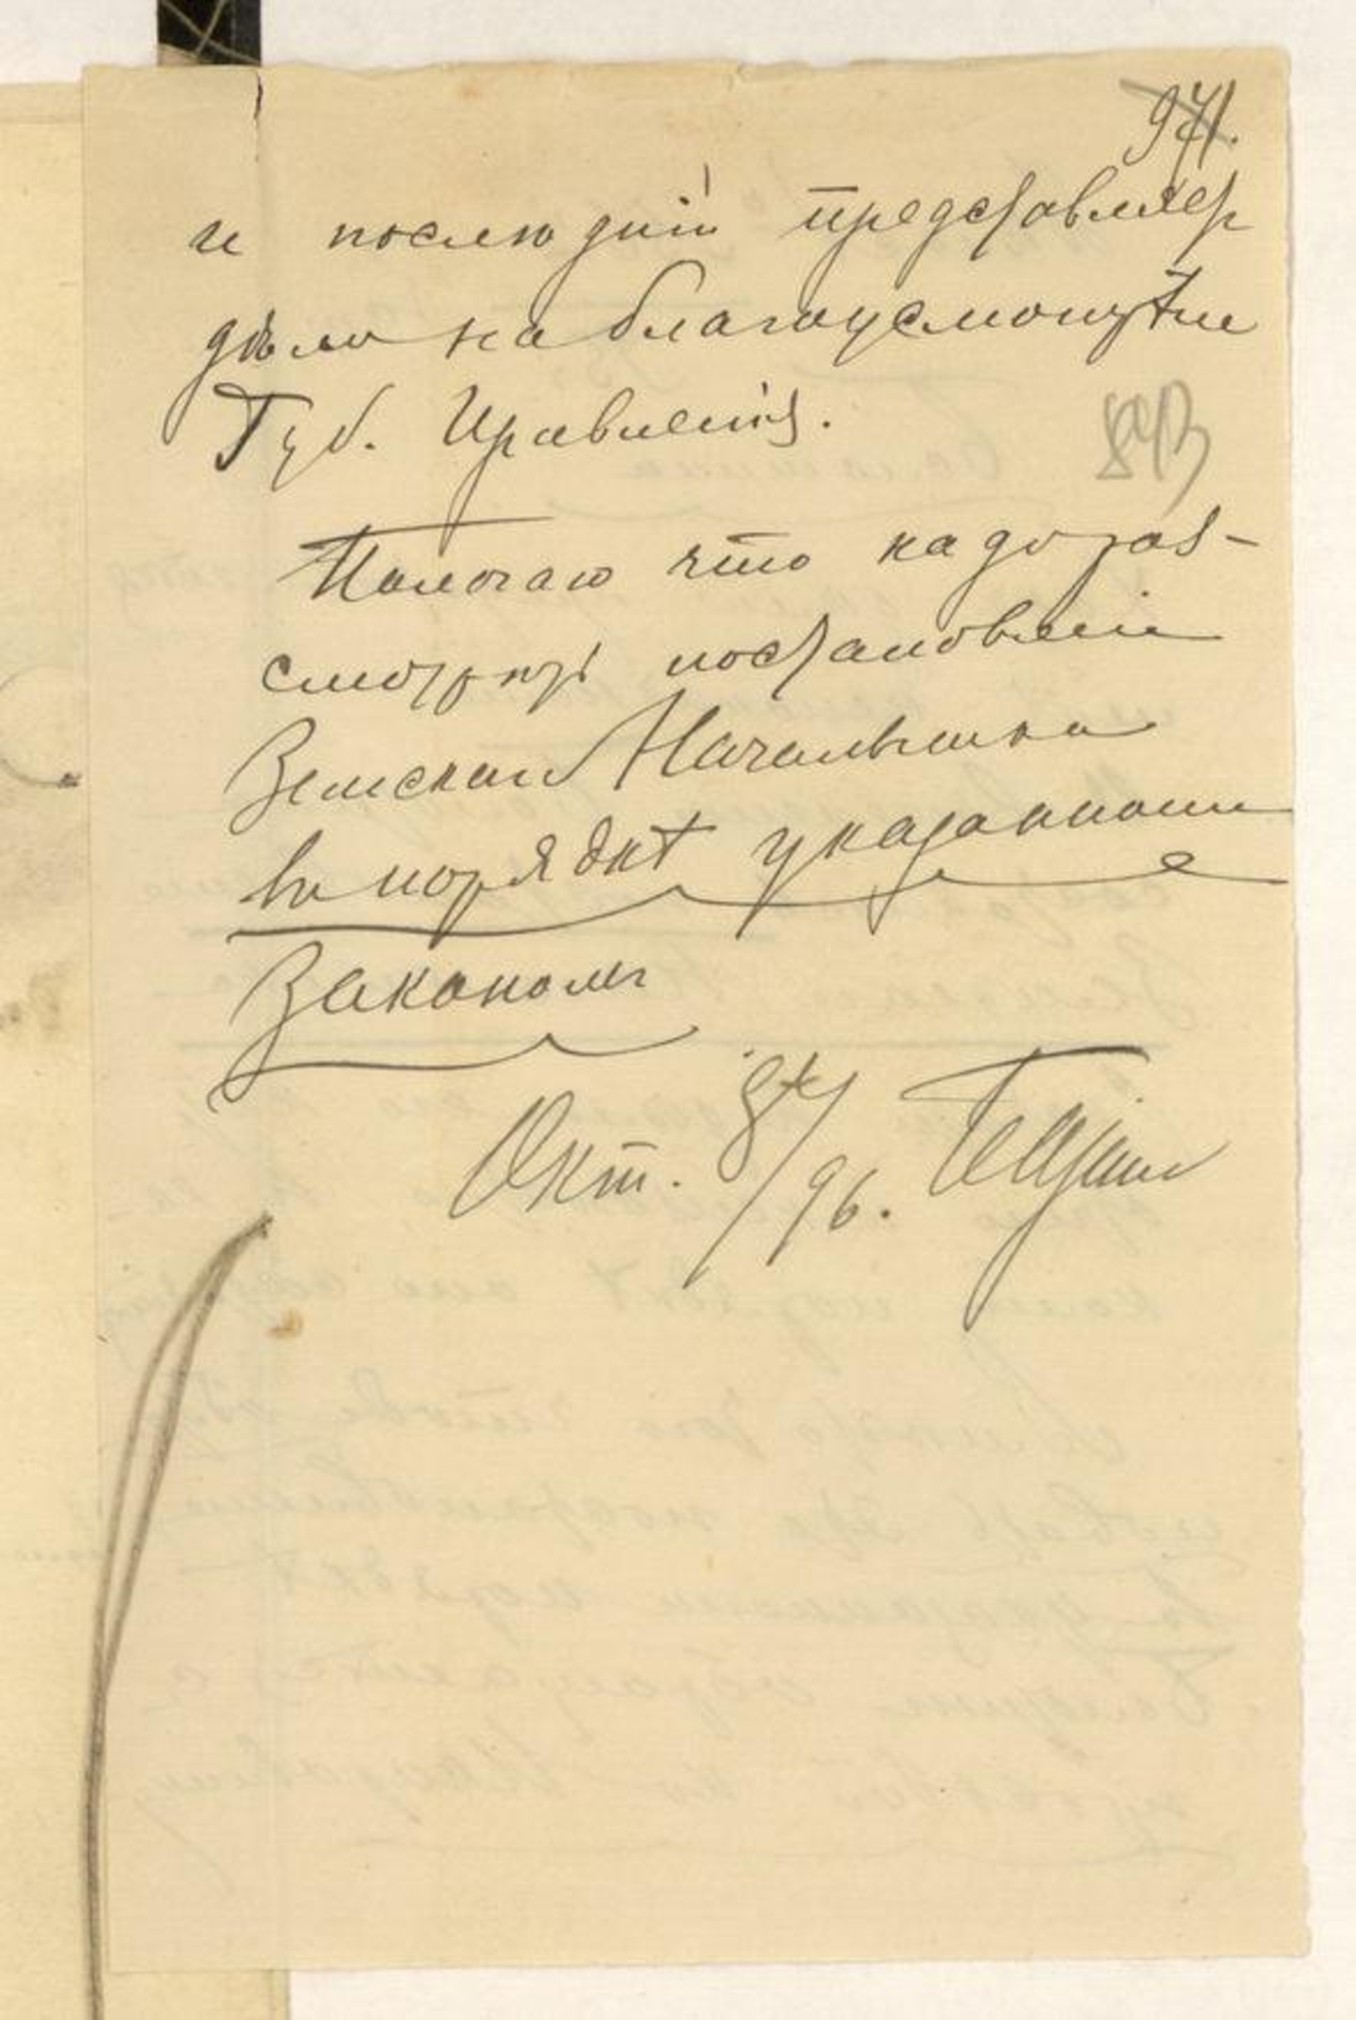 971.
и послѣдній представляетъ
дѣло на благоусмотрѣніе
Губ. Правленія.
893
Полагаю что надо раз-
смотрѣть постановленіе
Земскаго Начальника
въ порядкѣ указанномъ
Закономъ
Окт. 8/96.